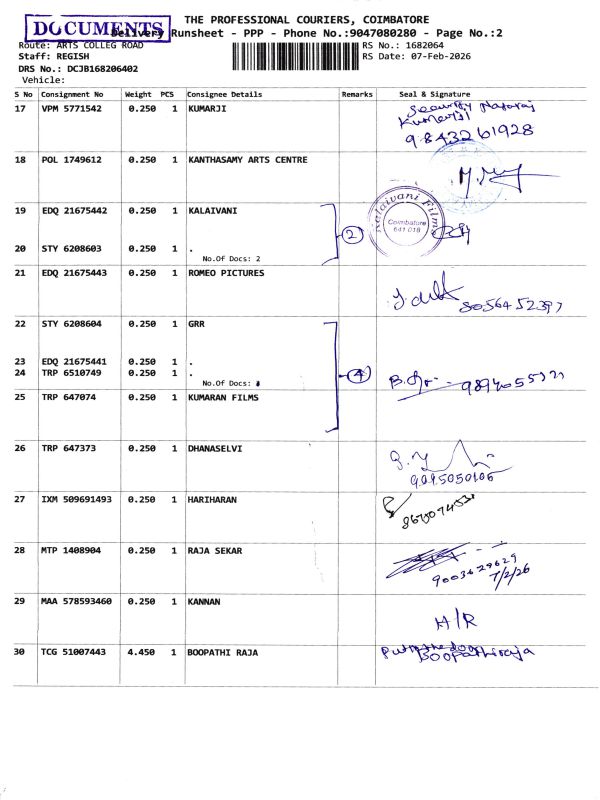 THE PROFESSIONAL COURIERS, COIMBATORE
DOCUMENTS
Delivery Runsheet - PPP - Phone No.:9047080280 - Page No.:2
Route: ARTS COLLEG ROAD RS No.: 1682064
Staff: REGISH RS Date: 07-Feb-2026
DRS No.: DCJB168206402
Vehicle:
S No Consignment No Weight PCS Consignee Details Remarks Seal & Signature
17 VPM 5771542 0.250 1 KUMARJI Security Nataraj
Kumarji
9843261928
18 POL 1749612 0.250 1 KANTHASAMY ARTS CENTRE
19 EDQ 21675442 0.250 1 KALAIVANI
Kalaivani Films
Coimbatore
641 018
2
20 STY 6208603 0.250 1 .
No.Of Docs: 2
21 EDQ 21675443 0.250 1 ROMEO PICTURES
8056452397
22 STY 6208604 0.250 1 GRR
23 EDQ 21675441 0.250 1 .
24 TRP 6510749 0.250 1 . 4
No.Of Docs:
25 TRP 647074 0.250 1 KUMARAN FILMS
26 TRP 647373 0.250 1 DHANASELVI
9095050106
27 IXM 509691493 0.250 1 HARIHARAN
28 MTP 1408904 0.250 1 RAJA SEKAR
9003629629
7/2/26
29 MAA 578593460 0.250 1 KANNAN
H/R
30 TCG 51007443 4.450 1 BOOPATHI RAJA
Boopathiraja